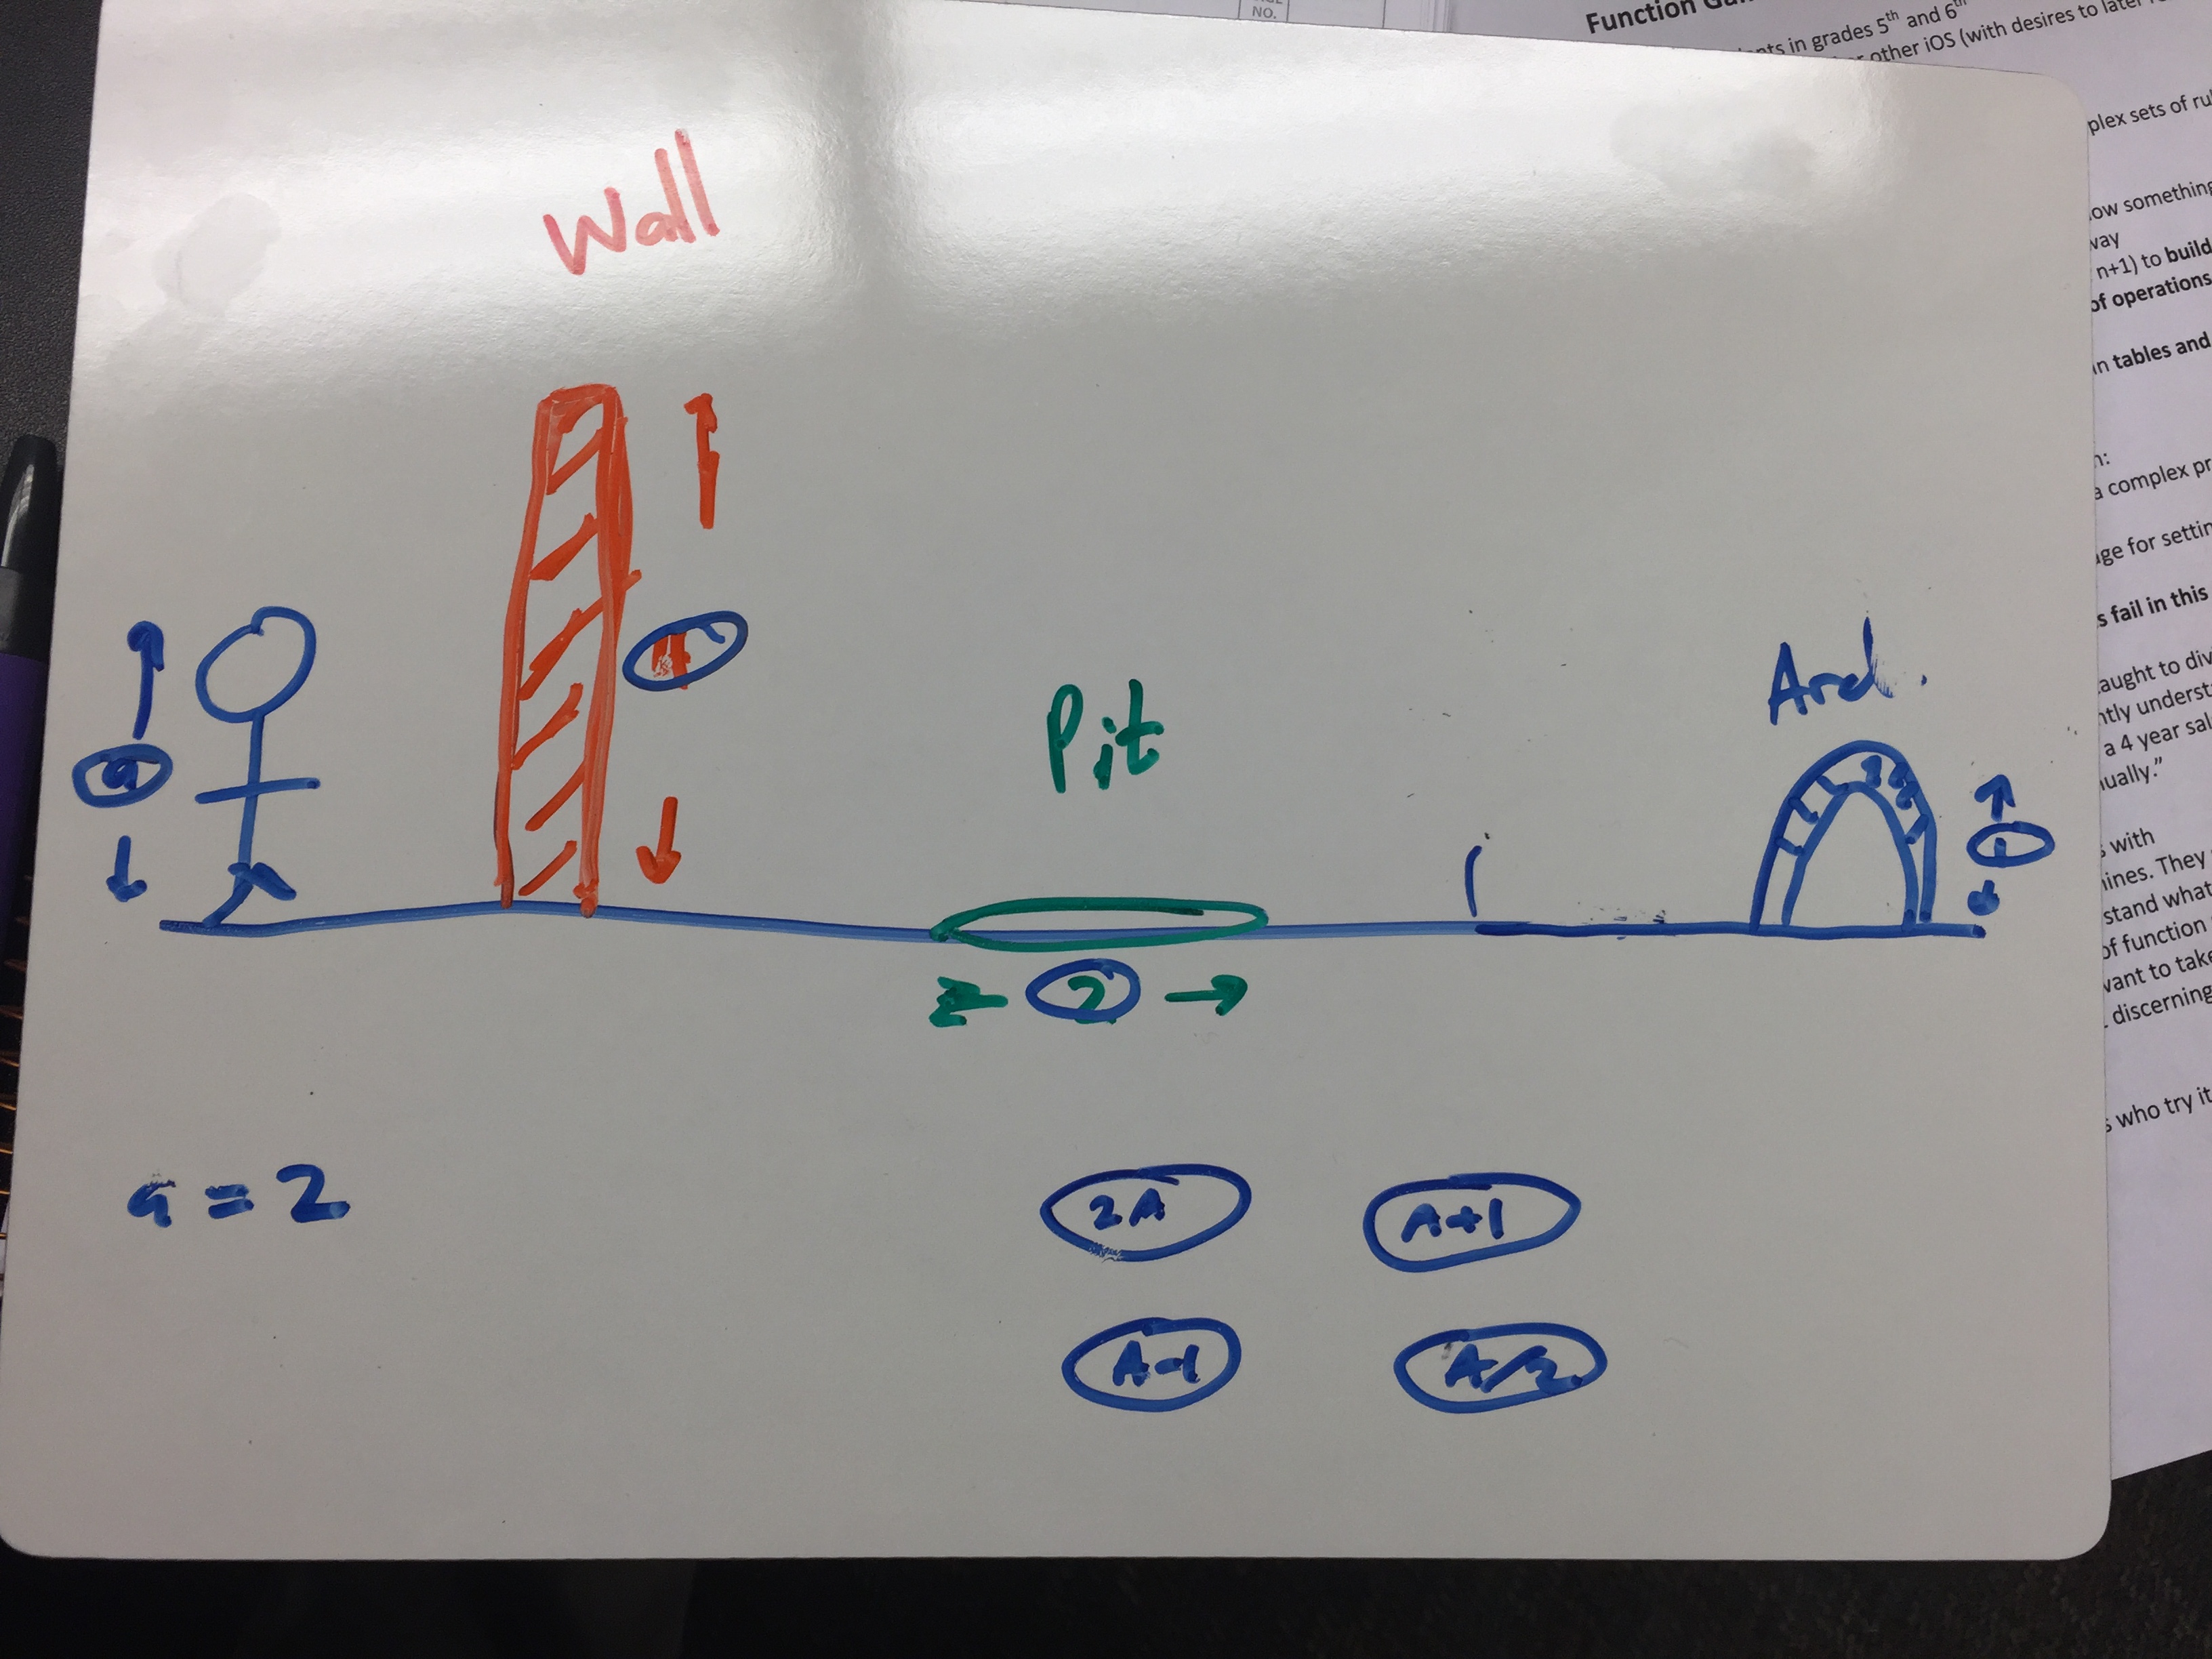 Wall
Pit
a
2
1
a = 2
2A
A+1
A-1
A/2
NO.
Function
nts in grades 5th and 6th
other iOS (with desires to
plex sets of
ow something
way
n+1) to build
of operations
in tables and
a complex
age for
s fail in this
aught to
ntly
a 4 year
ually."
with
ines. They
stand what
of function
want to take
discerning
who try it